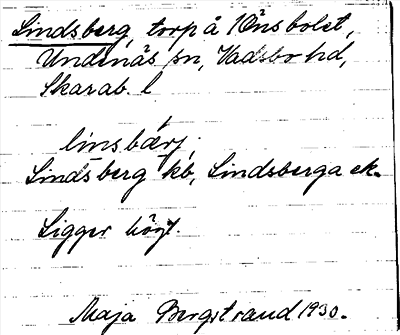 Lindsberg, torp å Önsbolet,
Undenäs sn, Vadsbo hd,
Skarab. l
linsbærj,
Lindsberg kb, Lindsberga ek.
Ligger högt.
Maja Bergstrand 1930.